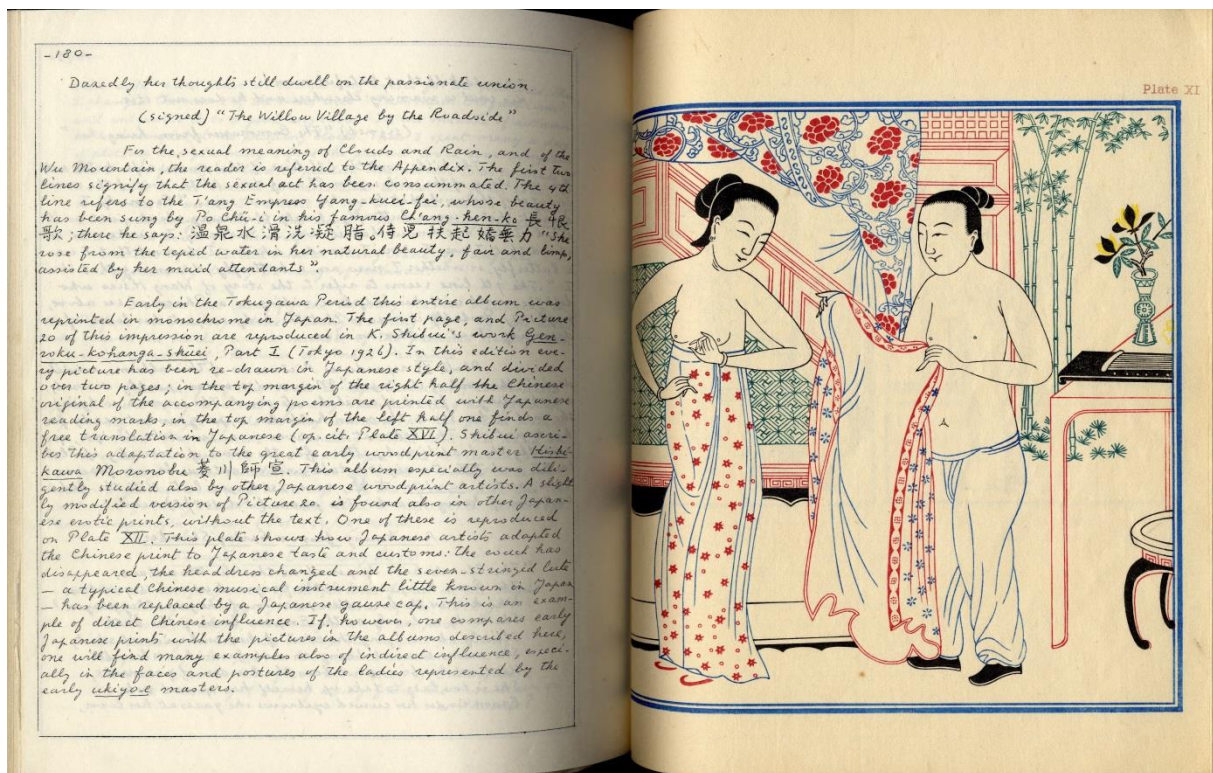 -180-
Dazedly her thoughts still dwell on the passionate union.
(signed) "The Willow Village by the Roadside"
For the sexual meaning of Clouds and Rain, and of the
Wu Mountain, the reader is referred to the Appendix. The first two
lines signify that the sexual act has been consummated. The 4th
line refers to the T'ang Empress Yang-kuei-fei, whose beauty
has been sung by Po Chü-i in his famous Ch'ang-hen-ko 長恨
歌; there he says: 温泉水滑洗凝脂。侍児扶起嬌無力 "She
rose from the tepid water in her natural beauty, fair and limp,
assisted by her maid attendants".
Early in the Tokugawa Period this entire album was
reprinted in monochrome in Japan. The first page, and Picture
20 of this impression are reproduced in K. Shibui's work Gen-
roku-kohanga-shūei, Part I (Tokyo 1926). In this edition eve-
ry picture has been re-drawn in Japanese style, and divided
over two pages; in the top margin of the right half the Chinese
original of the accompanying poems are printed with Japanese
reading marks, in the top margin of the left half one finds a
free translation in Japanese (op. cit. Plate XVI). Shibui ascri-
bes this adaptation to the great early woodprint master Hishi-
kawa Moronobu 菱川師宣. This album especially was dili-
gently studied also by other Japanese woodprint artists. A slight
ly modified version of Picture 20 is found also in other Japan-
ese erotic prints, without the text. One of these is reproduced
on Plate XII. This plate shows how Japanese artists adapted
the Chinese print to Japanese taste and customs: the couch has
disappeared, the headdress changed and the seven-stringed lute
– a typical Chinese musical instrument little known in Japan
– has been replaced by a Japanese gauze cap. This is an exam-
ple of direct Chinese influence. If, however, one compares early
Japanese prints with the pictures in the albums described here,
one will find many examples also of indirect influence, especi-
ally in the faces and postures of the ladies represented by the
early ukiyo-e masters.
Plate XI